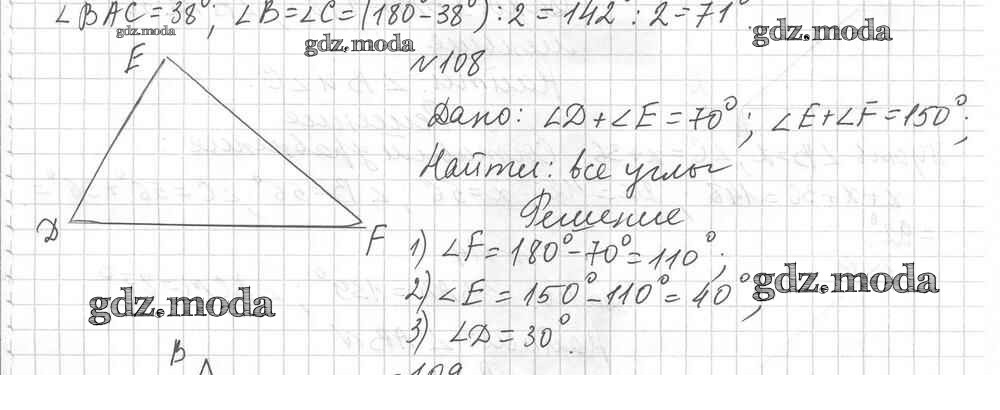 ∠BAC = 38°; ∠B = ∠C = (180° - 38°) : 2 = 142° : 2 = 71°
gdz.moda
gdz.moda
gdz.moda
№108
E
Дано: ∠D + ∠E = 70°; ∠E + ∠F = 150°;
Найти: все углы
Решение
D
F
1) ∠F = 180° - 70° = 110°;
2) ∠E = 150° - 110° = 40°;
gdz.moda
gdz.moda
3) ∠D = 30°.
B